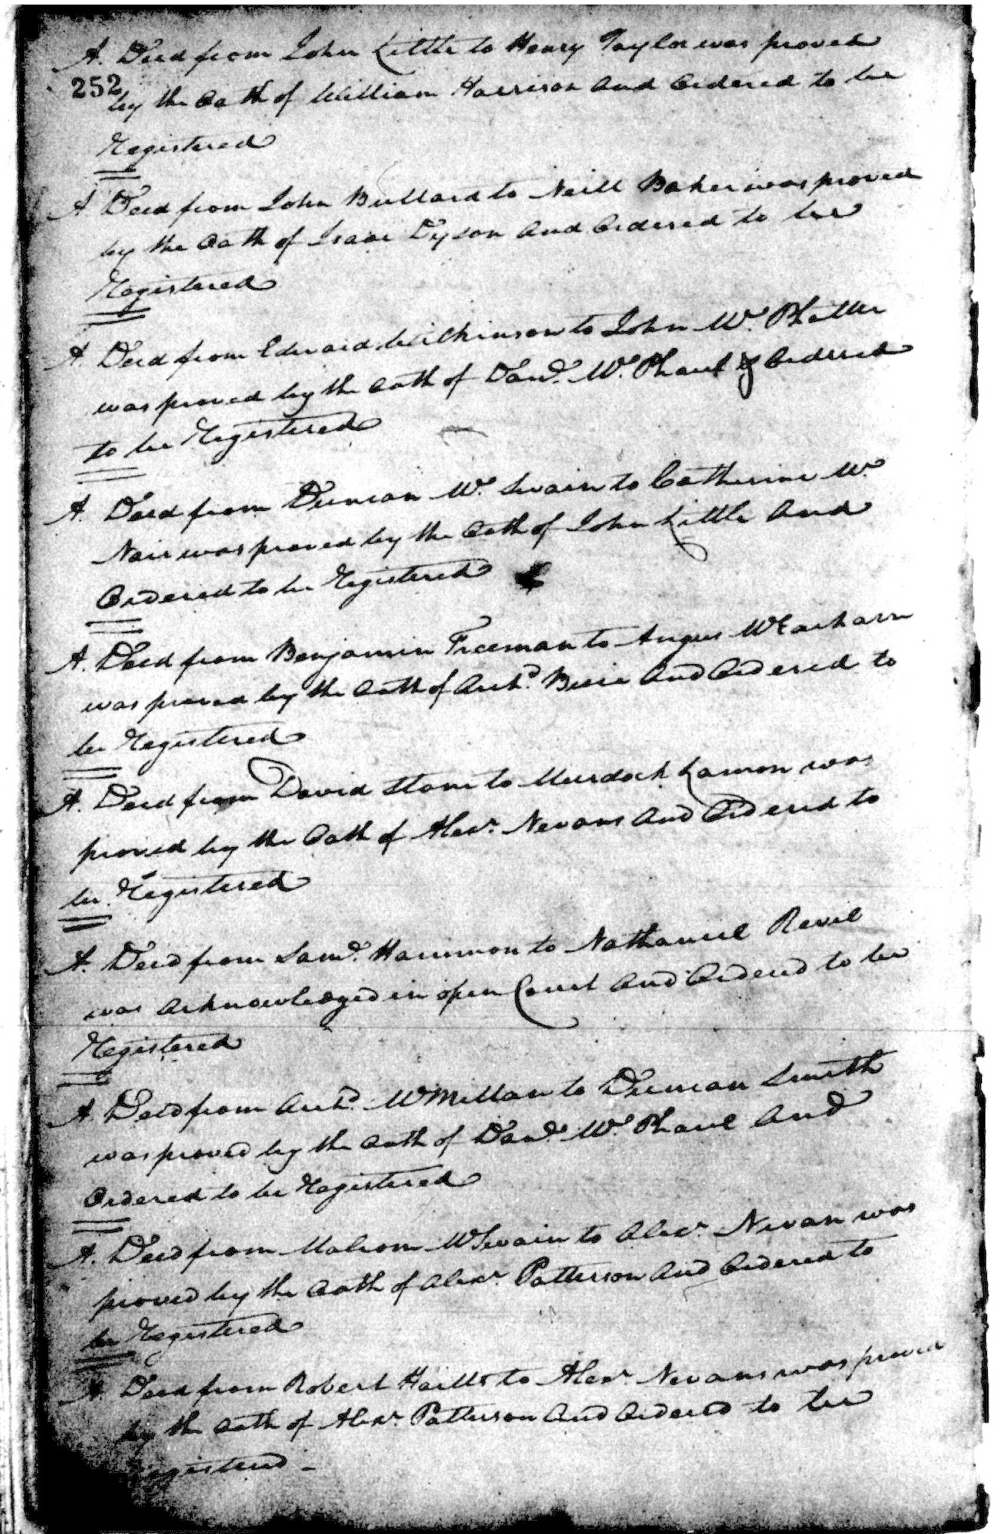 A. Deed from John Little to Henry Taylor was proved
252
by the Oath of William Harrison And Ordered to be
Registered
A Deed from John Bullard to Neill Baker was proved
by the Oath of Isaac Dyson And Ordered to be
Registered
A. Deed from Edward Wilkinson to John Mc. Phatter
was proved by the Oath of Dand. Mc. Phaul & Ordered
to be Registered
A. Deed from Duncan Mc. Swain to Catherine Mc.
Nair was proved by the Oath of John Little And
Ordered to be Registered
A. Deed from Benjamin Freeman to Angus McEacharn
was proved by the Oath of Archd. Buie And Ordered to
be Registered
A. Deed from David Stone to Murdock Lamon was
proved by the Oath of Alexr. Nevans And Ordered to
be Registered
A. Deed from Saml. Hammon to Nathaniel Revil
was Acknowledged in open Court And Ordered to be
Registered
A. Deed from Archd. McMillan to Duncan Smith
was proved by the Oath of Dand. Mc. Phaul And
Ordered to be Registered
A. Deed from Malcom McSwain to Alexr. Nevan was
proved by the Oath of Alexr. Patterson And Ordered to
be Registered
A Deed from Robert to Alexr. Nevans was proved
by the Oath of Alexr. Patterson And Ordered to be
Registered